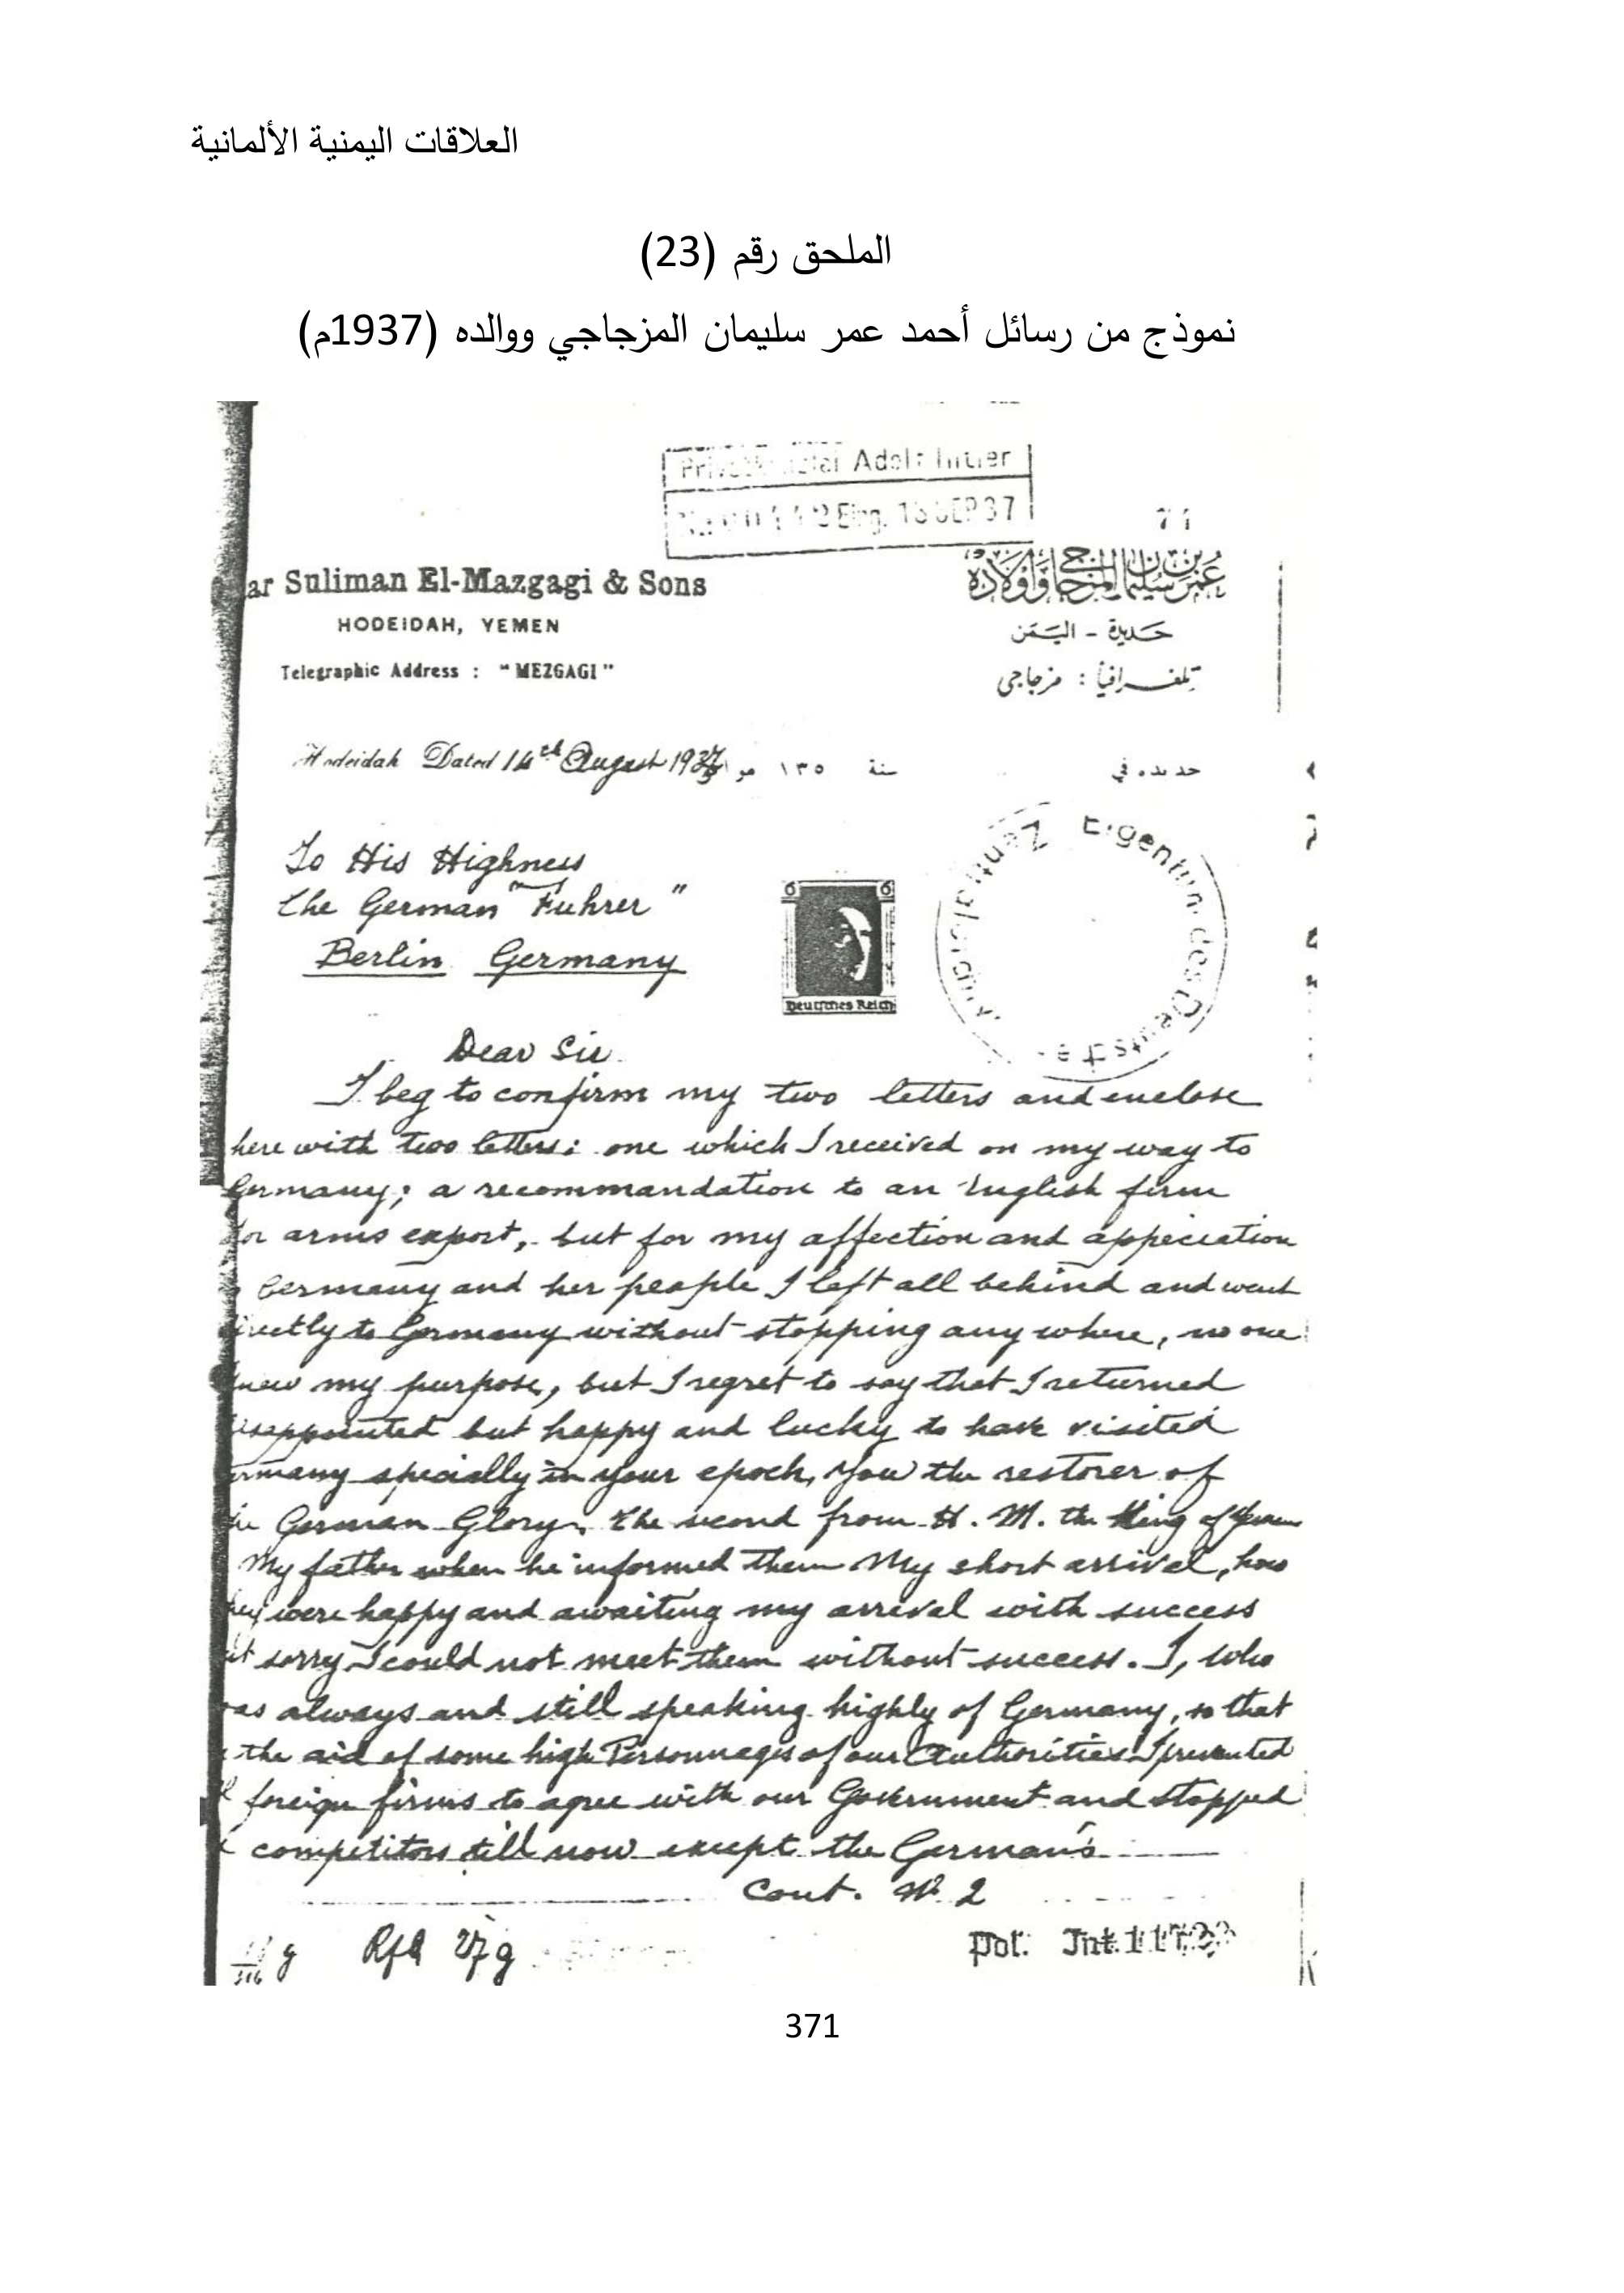 العلاقات اليمنية الألمانية
الملحق رقم (23)
نموذج من رسائل أحمد عمر سليمان المزجاجي ووالده (1937م)
Adolf Hitler
Eing. 13 SEP 37
71
ar Suliman El-Mazgagi & Sons
HODEIDAH, YEMEN
Telegraphic Address : "MEZGAGI"
عمر بن سليمان المزجاجي وأولاده
حديدة - اليمن
تلغرافياً : مزجاجى
Hodeidah Dated 14th August 1937
حديده في سنة ١٣٥
To His Highness
the German "Fuhrer"
Berlin Germany
6 6
Deutsches Reich
Eigentum des
Dear Sir
I beg to confirm my two letters and enclose
here with two letters: one which I received on my way to
Germany; a recommandation to an English firm
for arms export, but for my affection and appeciation
Germany and her people I left all behind and went
irectly to Germany without stopping any where, no one
knew my purpose, but I regret to say that I returned
isappointed but happy and lucky to have visited
ermany specially in your epoch, You the restorer of
the German Glory. The second from H. M. the King of Yemen
My father when he informed them My short arrival, how
hey were happy and awaiting my arrival with success
ut sorry I could not meet them without success. I, who
as always and still speaking highly of Germany, so that
the aid of some high Personnages of our Authorities I prevented
foreign firms to agree with our Government and stopped
competitors till now except the German's
Cont. No 2
Pol. Int.
371